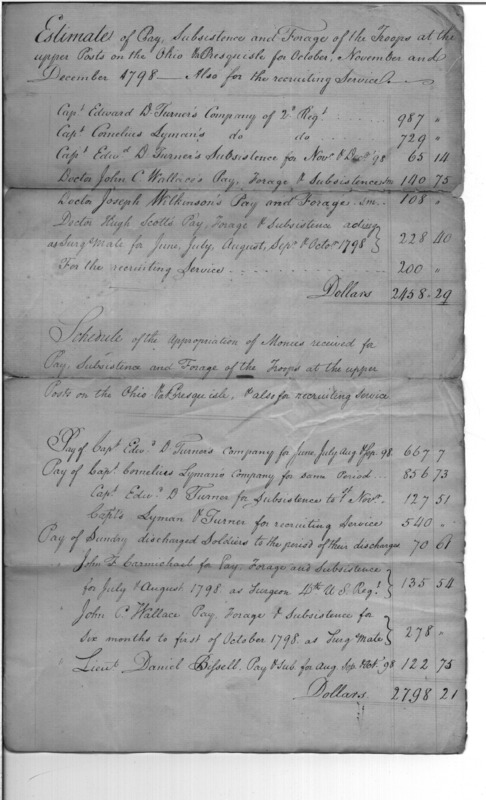 Estimate of Pay, Subsistence and Forage of the Troops at the
upper Posts on the Ohio & Presquisle for October, November and
December 1798 — Also for the recruiting Service
Capt Edward D Turner's Company of 2d Regt 987 "
Capt Cornelius Lyman's do do 729 "
Capt Edwd D Turner's Subsistence for Novr & Decr 98 65 14
Doctor John C Wallace's Pay, Forage & Subsistence 3m 140 75
Doctor Joseph Wilkinson's Pay and Forage 3m 108 "
Doctor Hugh Scott's Pay, Forage & Subsistence acting
as Surgs Mate for June, July, August, Sepr & Octor 1798 228 40
For the recruiting Service 200 "
Dollars 2458.29
Schedule of the appropriation of Monies received for
Pay, Subsistence and Forage of the Troops at the upper
Posts on the Ohio & Presquisle, & also for recruiting Service
Pay of Capt Edwd D Turners company for June, July Aug & Sep. 98 667 7
Pay of Capt Cornelius Lyman's company for same Period 856 73
Capt Edwd D Turner for Subsistence to 1st Novr 127 51
Capts Lyman & Turner for recruiting Service 540 "
Pay of Sundry discharged Soldiers to the period of their discharges 70 61
" John F Carmichael for Pay, Forage and Subsistence
for July & August 1798 as Surgeon 4th U S Regt 135 54
" John C Wallace Pay, Forage & Subsistence for
six months to first of October 1798 as Surgs Mate 278 "
" Lieut Daniel Bissell, Pay & Sub for Aug Sep & Oct 98 122 75
Dollars 2798 21